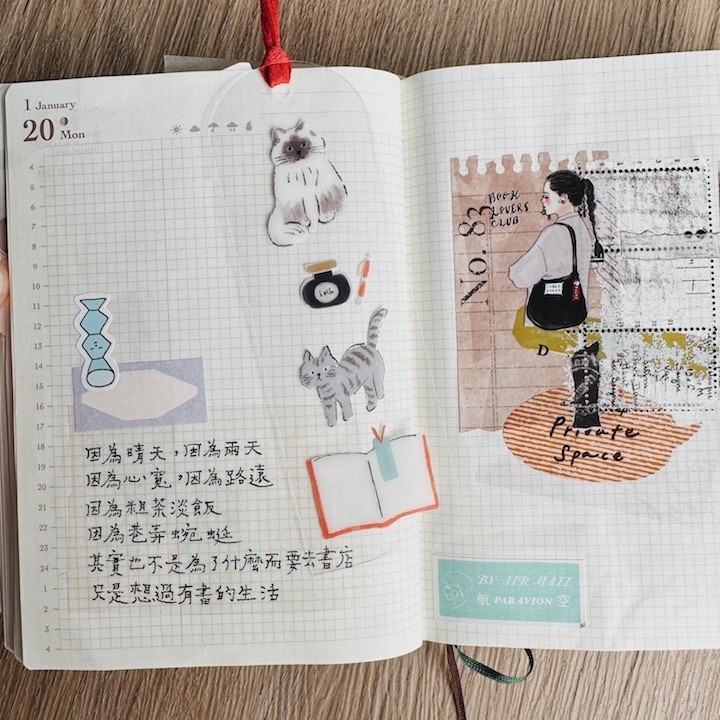 1 January
20 Mon
4
5
6
7
8
9
10
11
12
13
14
15
16
17
18
19
20
21
22
23
24
1
2
3
4
ink
因為晴天，因為雨天
因為心寬，因為路遠
因為粗茶淡飯
因為巷弄蜿蜒
其實也不是為了什麼而要去書店
只是想過有書的生活
No. 83
BOOK
LOVERS
CLUB
D
Private
Space
BY AIR MAIL
航 PAR AVION 空